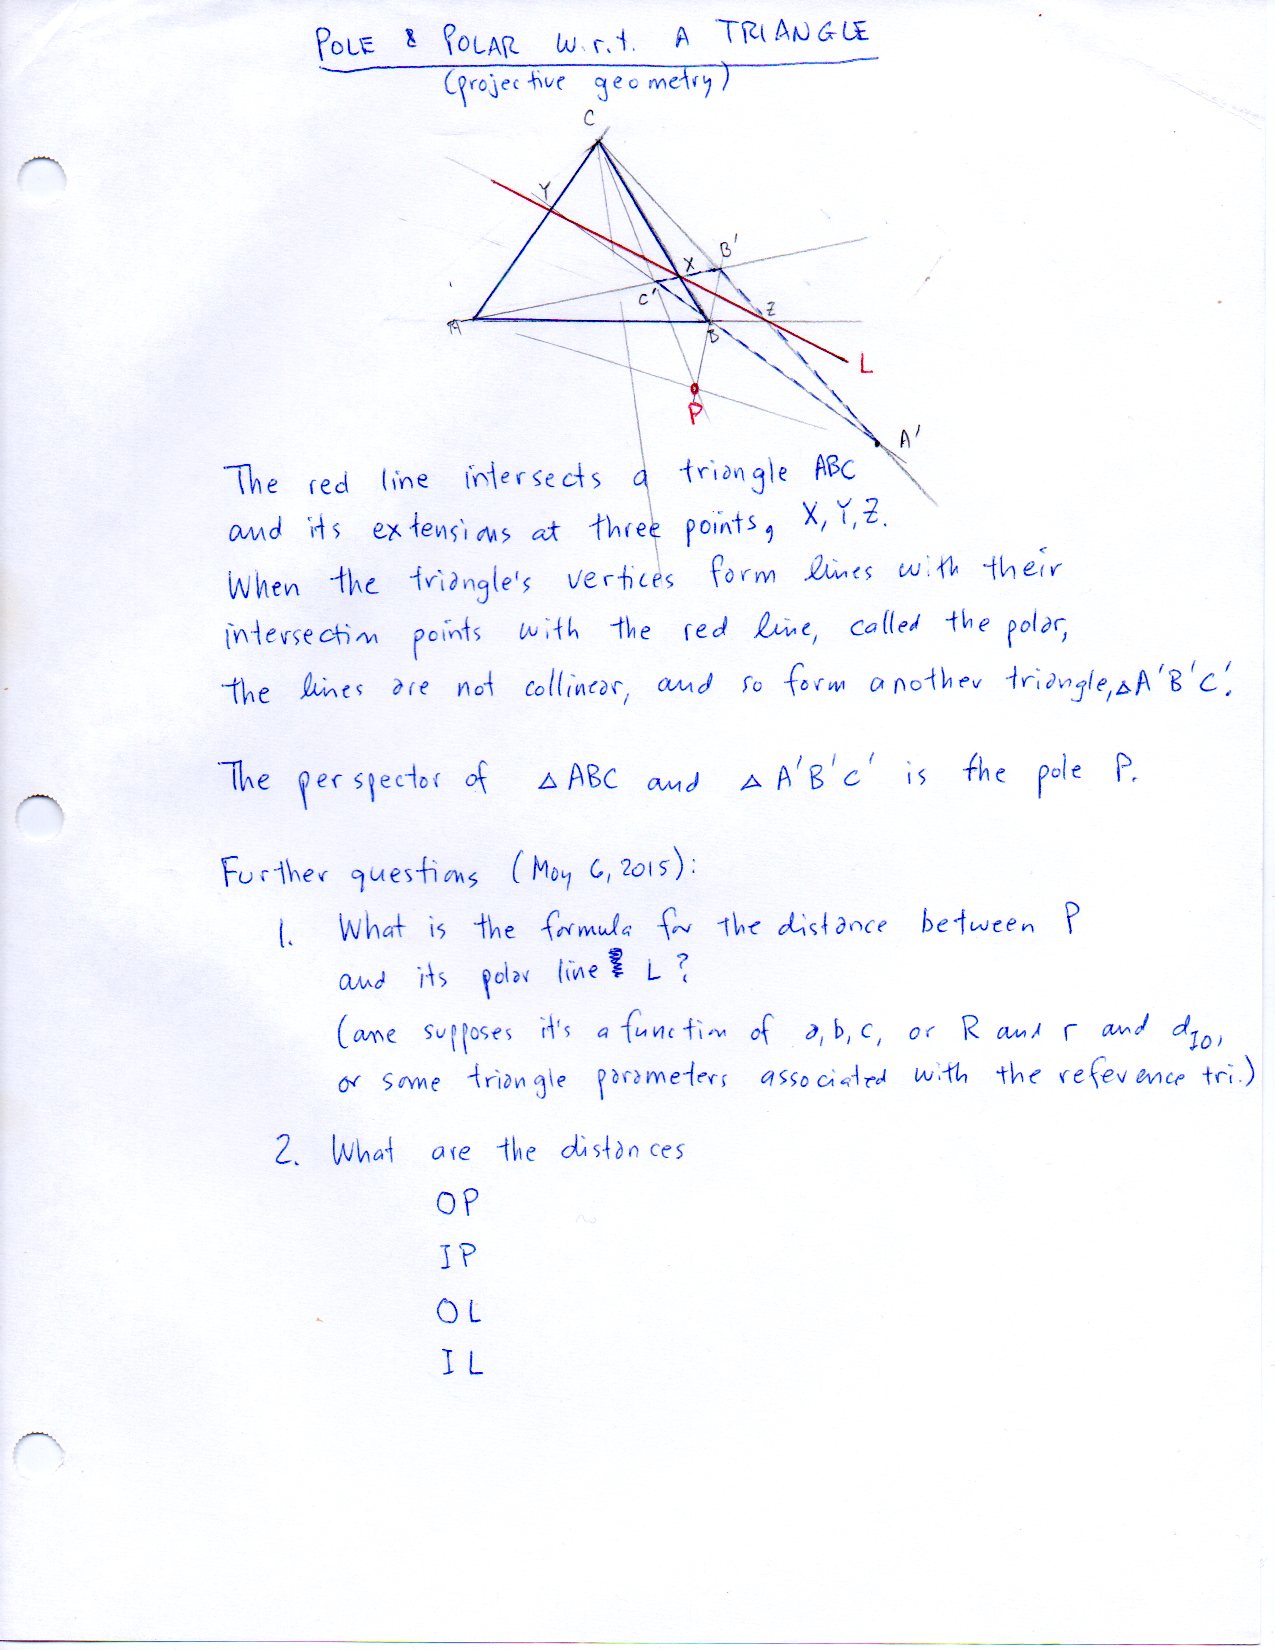 POLE & POLAR w.r.t. A TRIANGLE
(projective geometry)
C
Y
B'
X
C'
Z
A
B
L
P
A'
The red line intersects a triangle ABC
and its extensions at three points, X, Y, Z.
When the triangle's vertices form lines with their
intersection points with the red line, called the polar,
the lines are not collinear, and so form another triangle, △A'B'C'.
The perspector of △ABC and △A'B'C' is the pole P.
Further questions (May 6, 2015):
1. What is the formula for the distance between P
and its polar line L?
(one supposes it's a function of a, b, c, or R and r and dIO,
or some triangle parameters associated with the reference tri.)
2. What are the distances
OP
IP
OL
IL